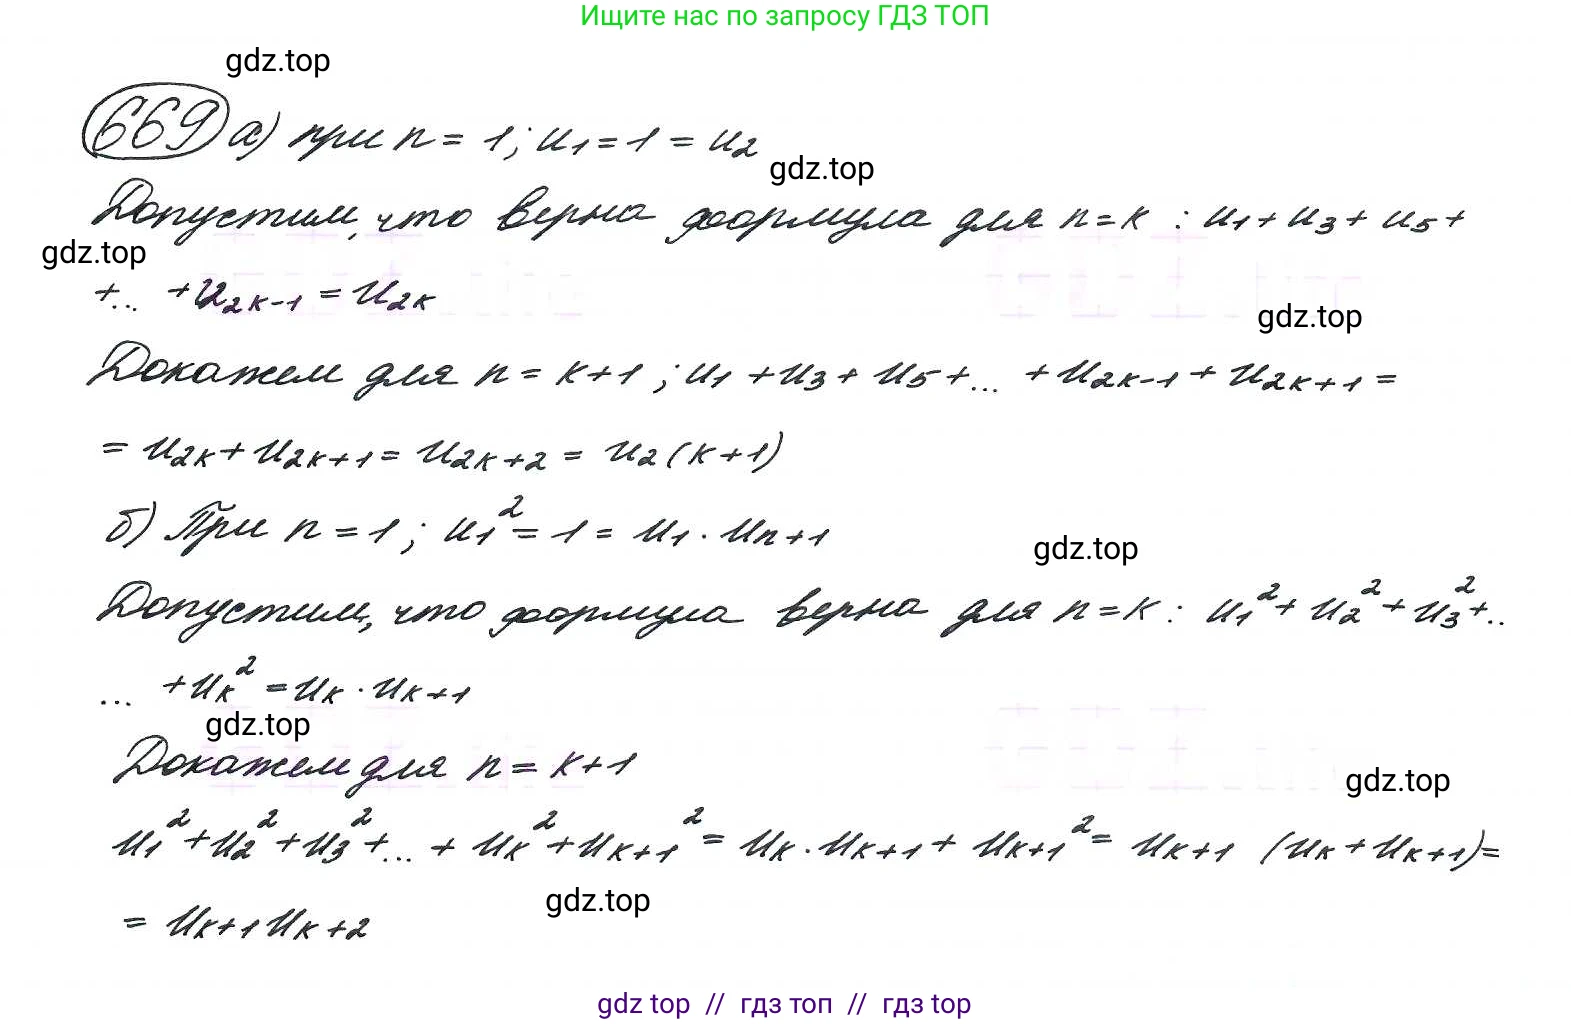 Ищите нас по запросу ГДЗ ТОП
gdz.top
669 а) при n = 1; u₁ = 1 = u₂
gdz.top
Допустим, что верна формула для n = k : u₁ + u₃ + u₅ +
gdz.top
+... + u₂ₖ₋₁ = u₂ₖ
gdz.top
Докажем для n = k+1 ; u₁ + u₃ + u₅ +... + u₂ₖ₋₁ + u₂ₖ₊₁ =
= u₂ₖ + u₂ₖ₊₁ = u₂ₖ₊₂ = u₂(k+1)
б) При n = 1 ; u₁² = 1 = u₁ · uₙ₊₁
gdz.top
Допустим, что формула верна для n = k : u₁² + u₂² + u₃² +..
... + uₖ² = uₖ · uₖ₊₁
gdz.top
Докажем для n = k+1
gdz.top
u₁² + u₂² + u₃² +... + uₖ² + uₖ₊₁² = uₖ · uₖ₊₁ + uₖ₊₁² = uₖ₊₁ (uₖ + uₖ₊₁) =
gdz.top
= uₖ₊₁ uₖ₊₂
gdz top // гдз топ // гдз top